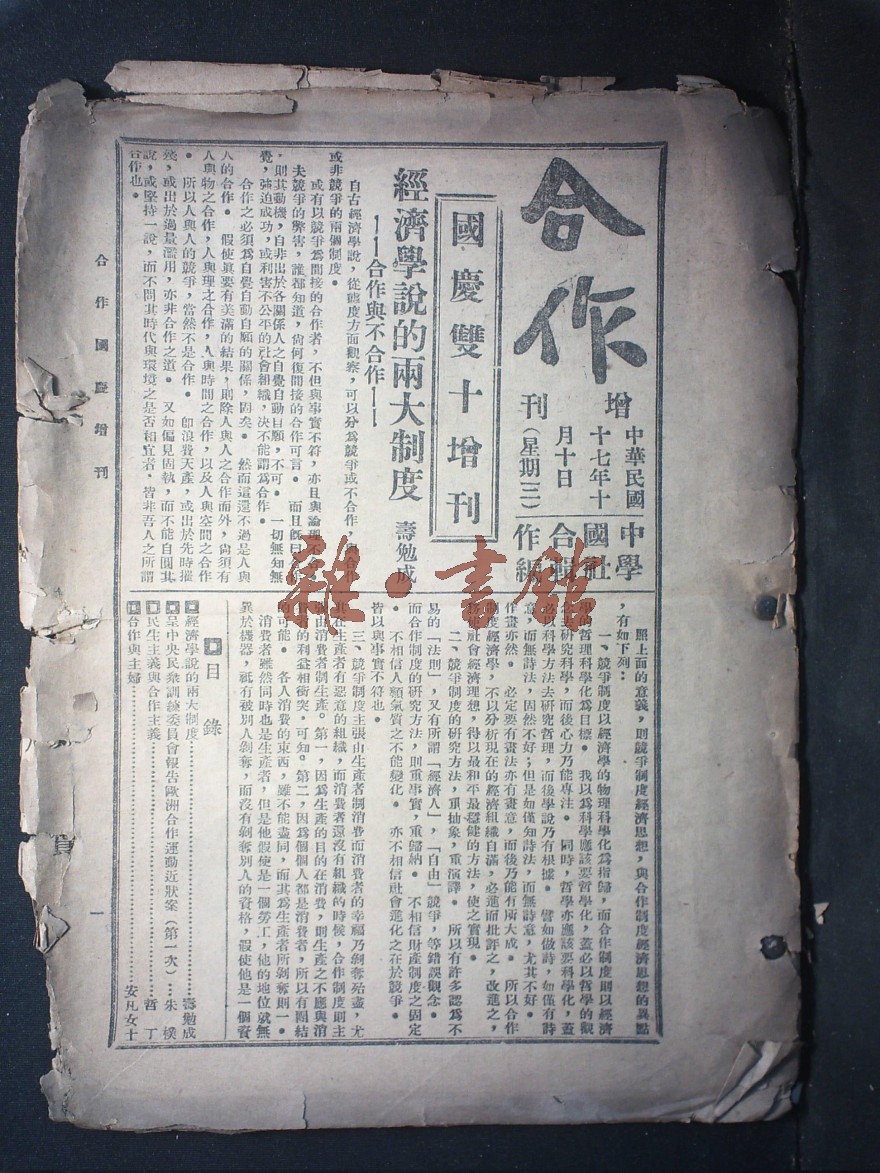 合作
增刊
中華民國
十七年十
月十日
(星期三)
中國合作
學社編輯
國慶雙十增刊
經濟學說的兩大制度
——合作與不合作——
壽勉成
自古經濟學說,從態度方面觀察,可以分爲競爭或不合作,與合作
或非競爭的兩個制度●
或有以競爭爲間接的合作者,不但與事實不符,亦且與論理不合●
夫競爭的弊害,誰都知道,尚何復間接的合作可言● 而且既曰合作
,則其動機,自非出於各關係人之自覺自動自願,不可● 一切無知無
覺,強迫成功,或利害不公平的社會組織,決不能謂爲合作●
合作之必須爲自覺自動自願的關係,固矣● 然而這還不過是人與
人的合作● 假使眞要有美滿的結果,則除人與人之合作而外,尚須有
人與物之合作,人與理之合作,人與時間之合作,以及人與空間之合作
● 所以人與人的競爭,當然不是合作● 卽浪費天產,或出於先時摧
殘,或出於過量濫用,亦非合作之道● 又如偏見固執,而不能自圓其
說,或堅持一說,而不問其時代與環境之是否相宜者,皆非吾人之所謂
合作也●
照上面的意義,則競爭制度經濟思想,與合作制度經濟思想的異點
,有如下列:
一、競爭制度以經濟學的物理科學化爲指歸,而合作制度則以經濟
學的哲理科學化爲目標● 我以爲科學應該要哲學化,蓋必以哲學的觀
念去研究科學,而後心力乃能專注● 同時,哲學亦應該要科學化,蓋
必以科學方法去研究哲理,而後學說乃有根據● 譬如做詩,如僅有詩
意,而無詩法,固然不好;但是如僅知詩法,而無詩意,尤其不好●
作畫亦然● 必定要有畫法亦有畫意,而後乃能有所大成● 所以合作
制度經濟學,不以分析現在的經濟組織自滿,必進而批評之,改進之,
務使社會經濟理想,得以最和平最穩健的方法,使之實現●
二、競爭制度的研究方法,重抽象,重演譯● 所以有許多認爲不
易的「法則」,又有所謂「經濟人」,「自由」競爭,等錯誤觀念●
而合作制度的研究方法,則重事實,重歸納● 不相信財產制度之固定
● 不相信人類氣質之不能變化● 亦不相信社會進化之在於競爭●
皆以與事實不符也●
三、競爭制度主張由生產者制消費而消費者的幸福乃剝奪殆盡,尤
其在生產者有惡意的組織,而消費者還沒有組織的時候,合作制度則主
張由消費者制生產。第一,因爲生產的目的在消費,則生產之不應與消
費者的利益相衝突,可知。第二,因爲個個人都是消費者,所以有團結
的可能● 各人消費的東西,雖不能盡同,而其爲生產者所剝奪則一●
消費者雖然同時也是生產者,但是他假使是一個勞工,他的地位就無
異於機器,祗有被別人剝奪,而沒有剝奪別人的資格,假使他是一個資
目錄
經濟學說的兩大制度……壽勉成
呈中央民衆訓練委員會報告歐洲合作運動近狀案(第一次)…朱樸
民生主義與合作主義……哲丁
合作與主婦……安凡女士
合作國慶增刊
一
頁
雜·書館